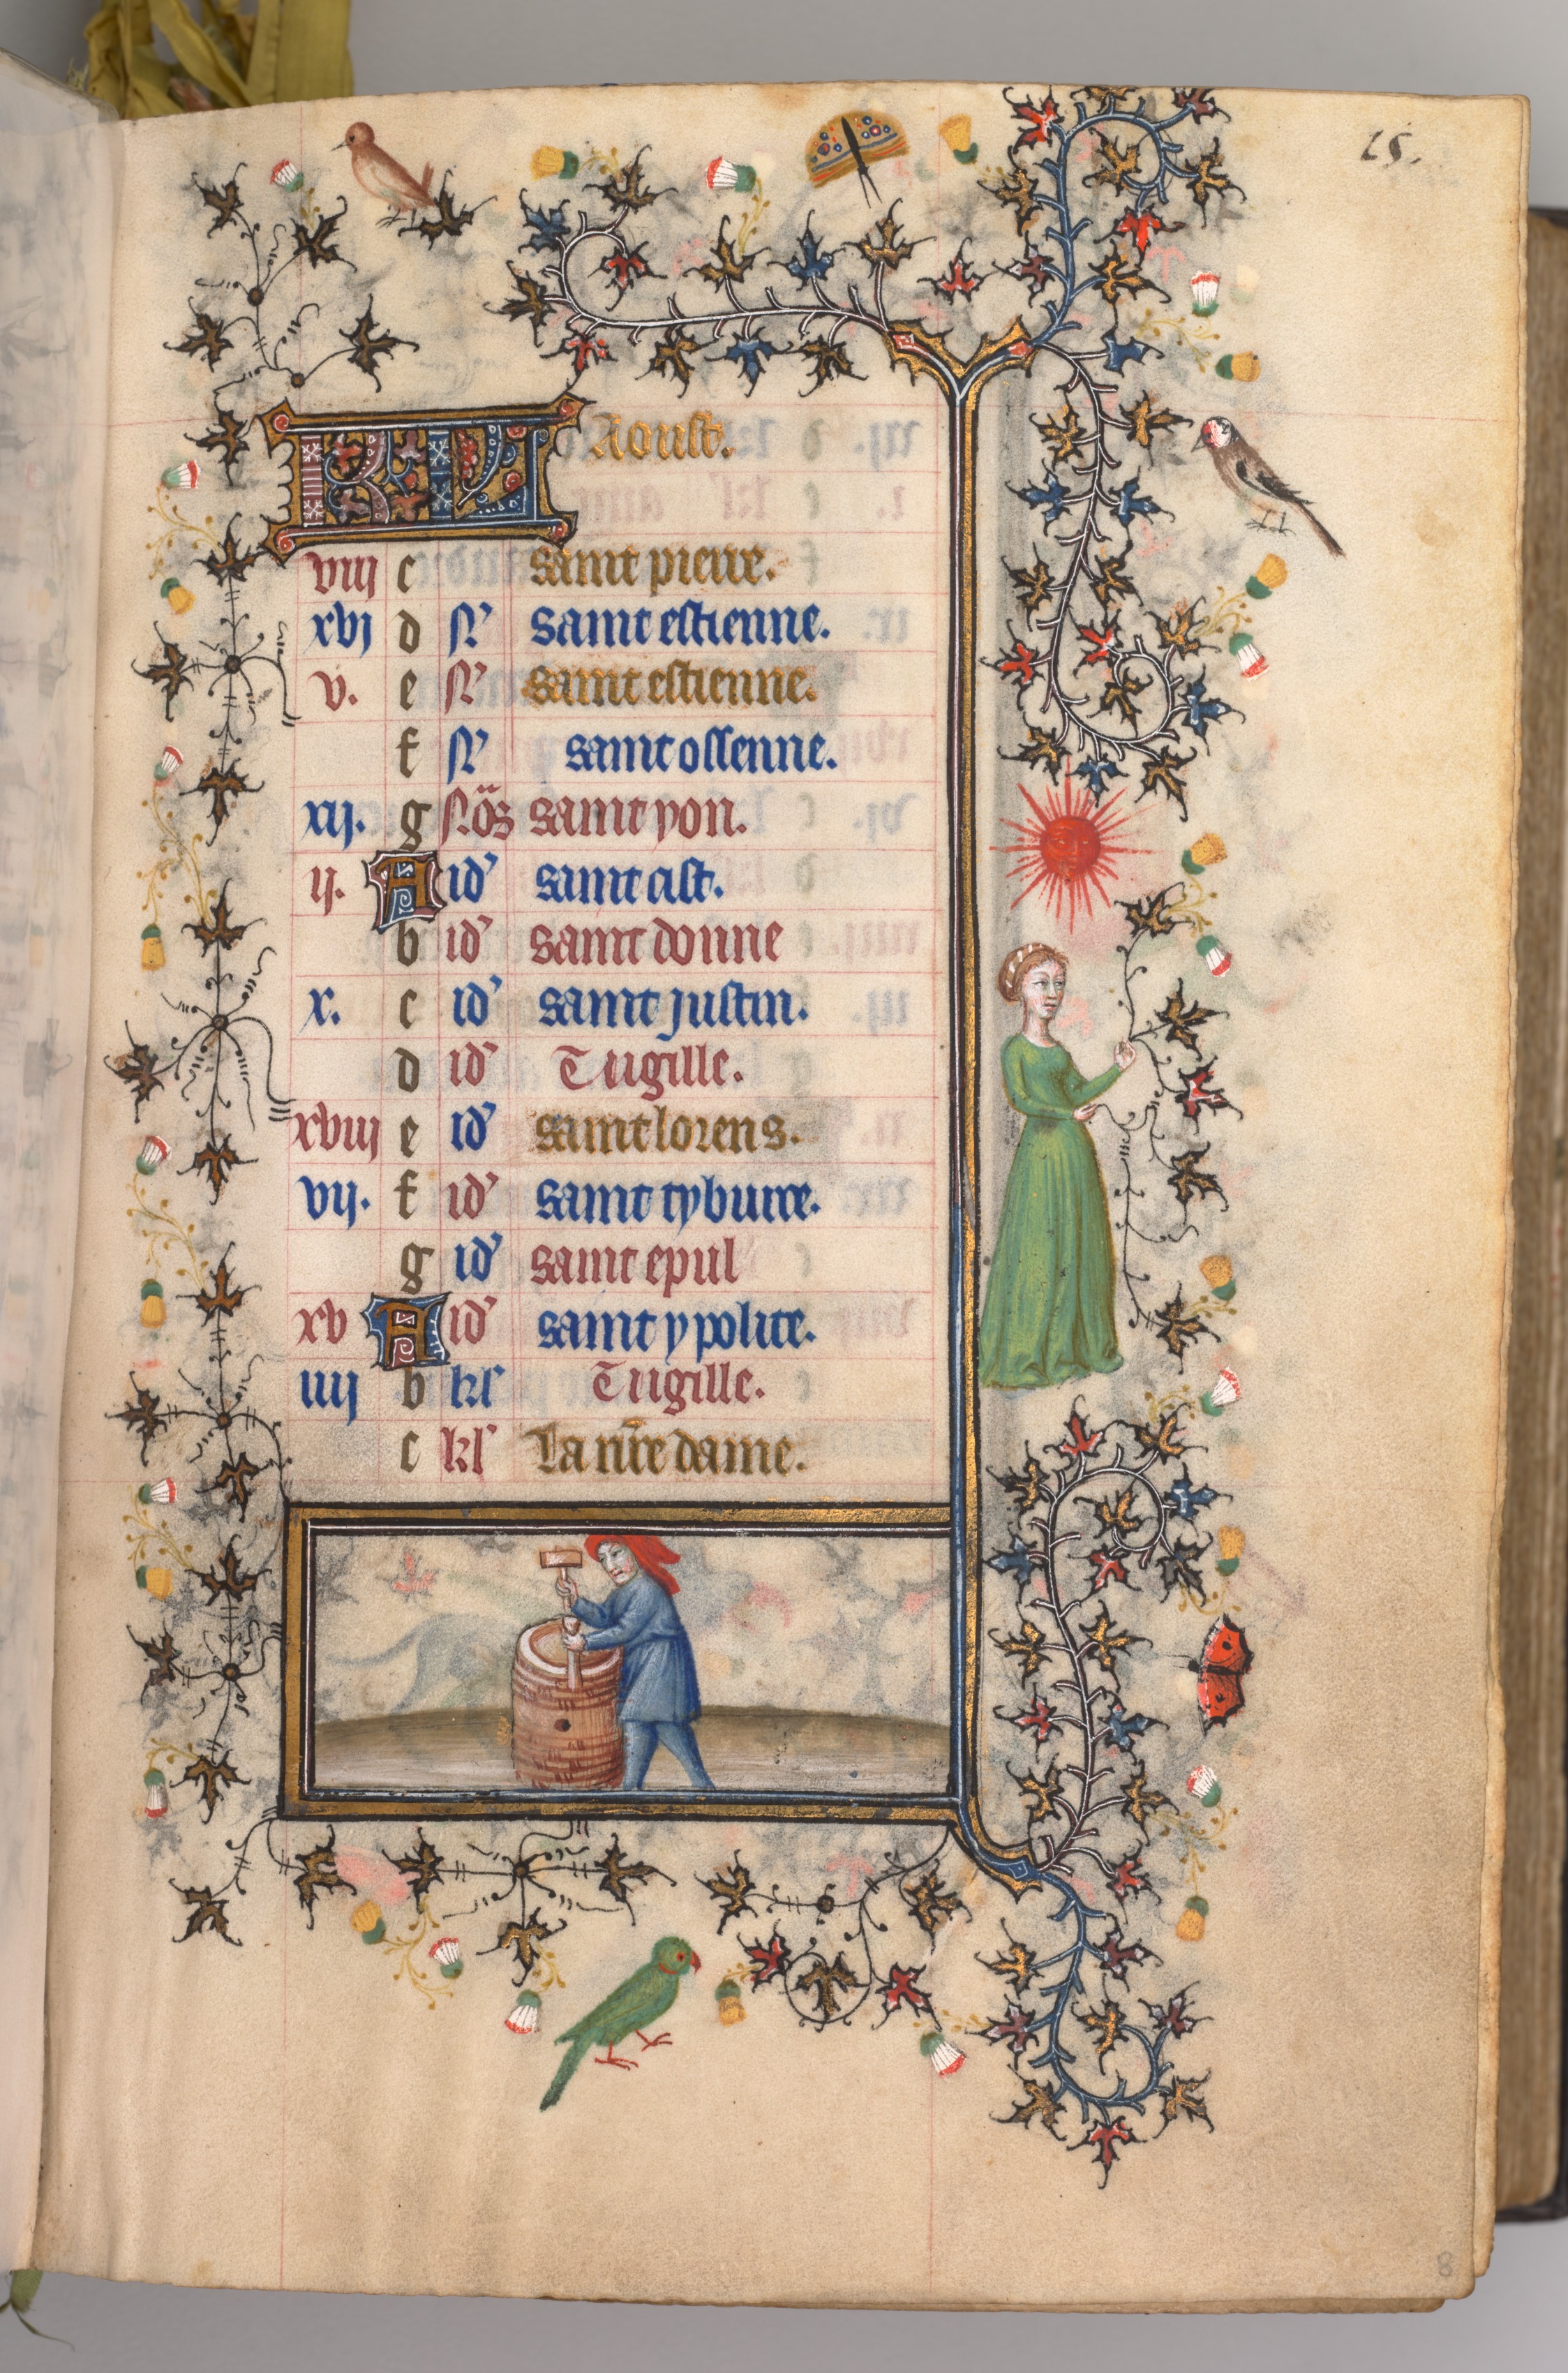 15.
KL Aoust.
viij c saint pierre.
xvj d N' saint estienne.
v. e N' saint estienne.
f N' saint ossenne.
xij. g Nõs saint yon.
ij. A id' saint cist.
b id' saint donne
x. c id' saint justin.
d id' Vigille.
xviij e id' saint lorens.
vij. f id' saint tyburce.
g id' saint epul
xv A id' saint ypolite.
iiij b kl' Vigille.
c kl' La nr̃e dame.
8